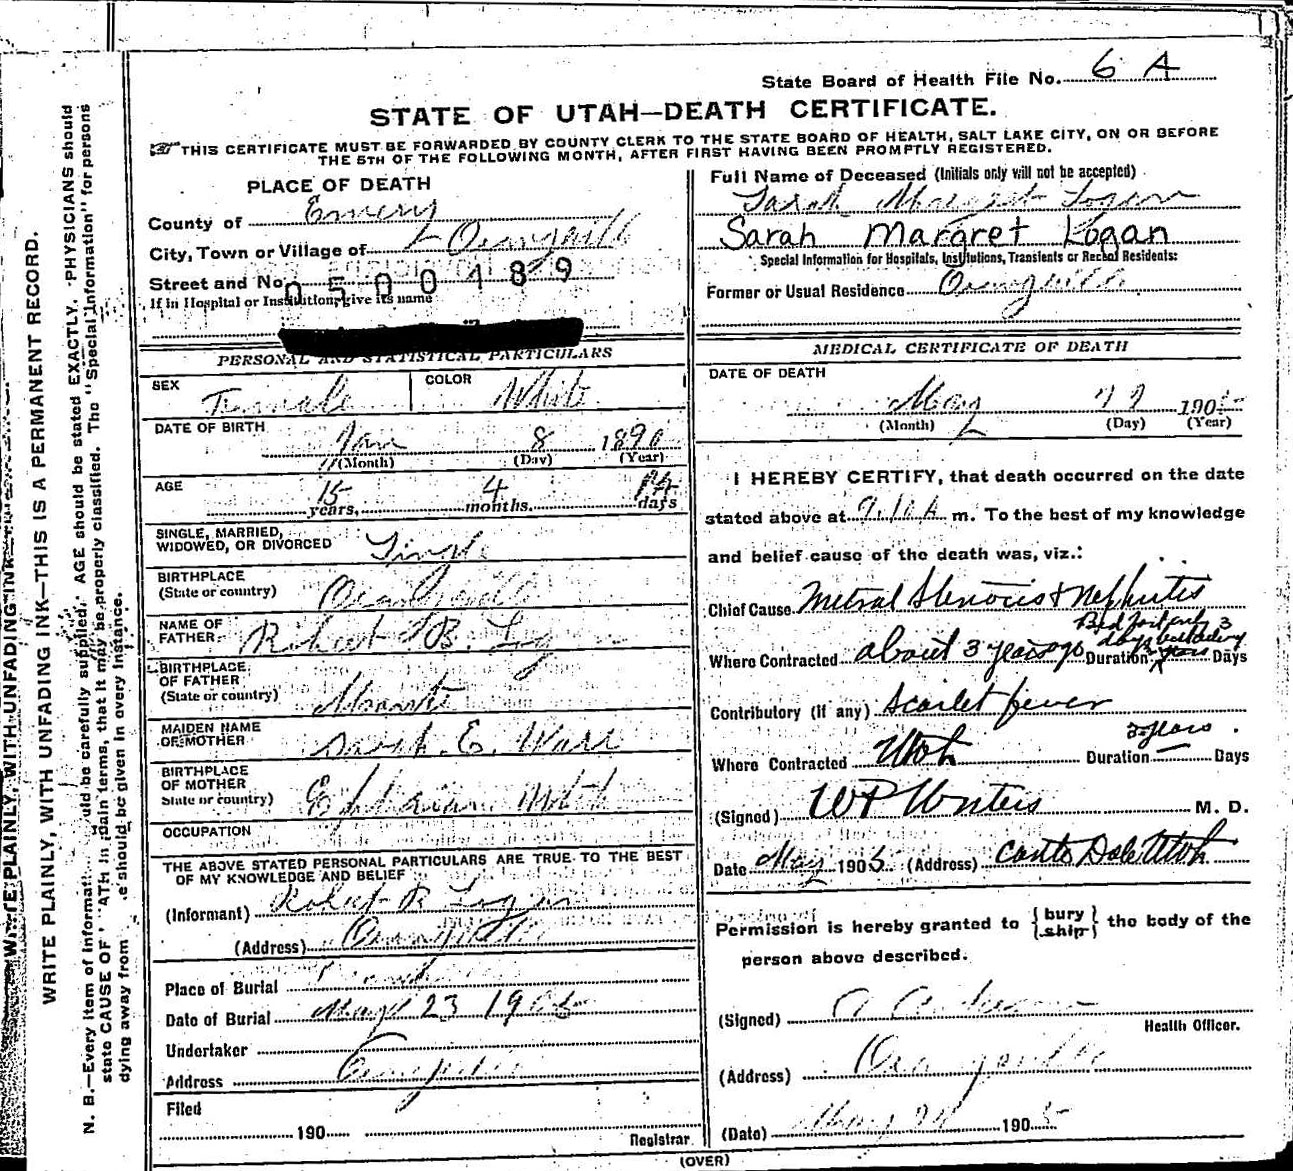 State Board of Health File No. 6 A
STATE OF UTAH—DEATH CERTIFICATE.
THIS CERTIFICATE MUST BE FORWARDED BY COUNTY CLERK TO THE STATE BOARD OF HEALTH, SALT LAKE CITY, ON OR BEFORE
THE 5TH OF THE FOLLOWING MONTH, AFTER FIRST HAVING BEEN PROMPTLY REGISTERED.
PLACE OF DEATH
County of Emery
City, Town or Village of Orangeville
Street and No. 0500489
If in Hospital or Institution, give its name
PERSONAL AND STATISTICAL PARTICULARS
SEX Female COLOR White
DATE OF BIRTH
Jan 8 1890
(Month) (Day) (Year)
AGE
15 years, 4 months. 14 days
SINGLE, MARRIED,
WIDOWED, OR DIVORCED Single
BIRTHPLACE
(State or country) Orangeville
NAME OF
FATHER Robert B. Logan
BIRTHPLACE
OF FATHER
(State or country)
MAIDEN NAME
OF MOTHER Sarah E. Warr
BIRTHPLACE
OF MOTHER
State or country) Ephraim Utah
OCCUPATION
THE ABOVE STATED PERSONAL PARTICULARS ARE TRUE TO THE BEST
OF MY KNOWLEDGE AND BELIEF
(Informant) Robert B Logan
(Address) Orangeville
Place of Burial
Date of Burial May 23 1905
Undertaker
Address Orangeville
Filed
190
Registrar
Full Name of Deceased (Initials only will not be accepted)
Sarah Margret Logan
Sarah Margret Logan
Special Information for Hospitals, Institutions, Transients or Recent Residents:
Former or Usual Residence Orangeville
MEDICAL CERTIFICATE OF DEATH
DATE OF DEATH
May 22 1905
(Month) (Day) (Year)
I HEREBY CERTIFY, that death occurred on the date
stated above at 9.10 A m. To the best of my knowledge
and belief cause of the death was, viz.:
Chief Cause Metral Stenosis & Nephrites
Where Contracted about 3 years ago Duration Days
Contributory (if any) Scarlet fever
Where Contracted Utah Duration 3 years Days
(Signed) W P Winters M. D.
Date May 1905 (Address) Castle Dale Utah
Permission is hereby granted to {bury / ship} the body of the
person above described.
(Signed)
Health Officer.
(Address) Orangeville
(Date) May 1905
(OVER)
WRITE PLAINLY, WITH UNFADING INK—THIS IS A PERMANENT RECORD.
N. B.—Every item of informat ould be carefully supplied. AGE should be stated EXACTLY. PHYSICIANS should
state CAUSE OF ATH in plain terms, that it may be properly classified. The "Special Information" for persons
dying away from e should be given in every instance.